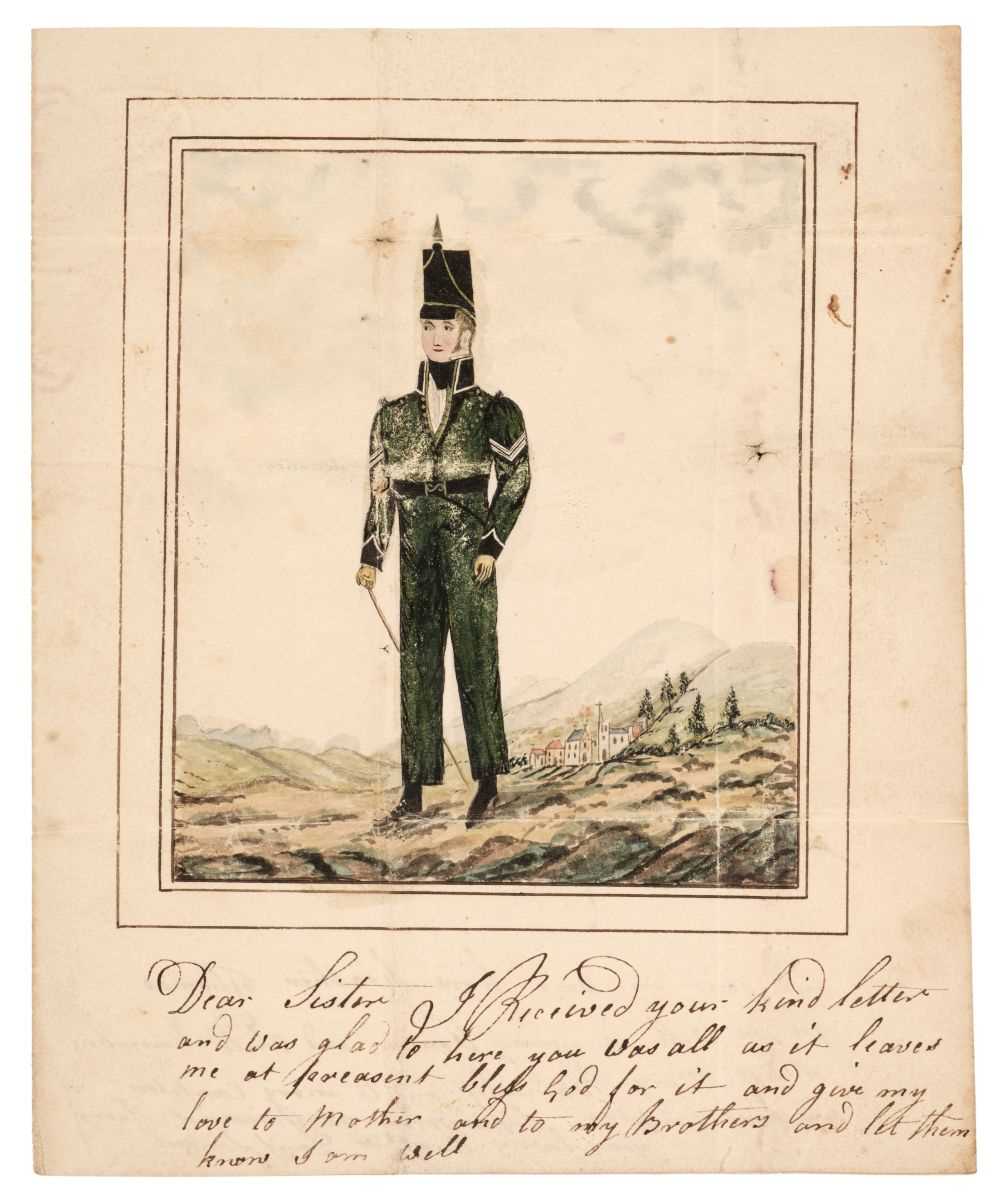 Dear Sister I Received your kind letter
and was glad to here you was all as it leaves
me at preasent bless God for it and give my
love to Mother and to my Brothers and let them
know I am well